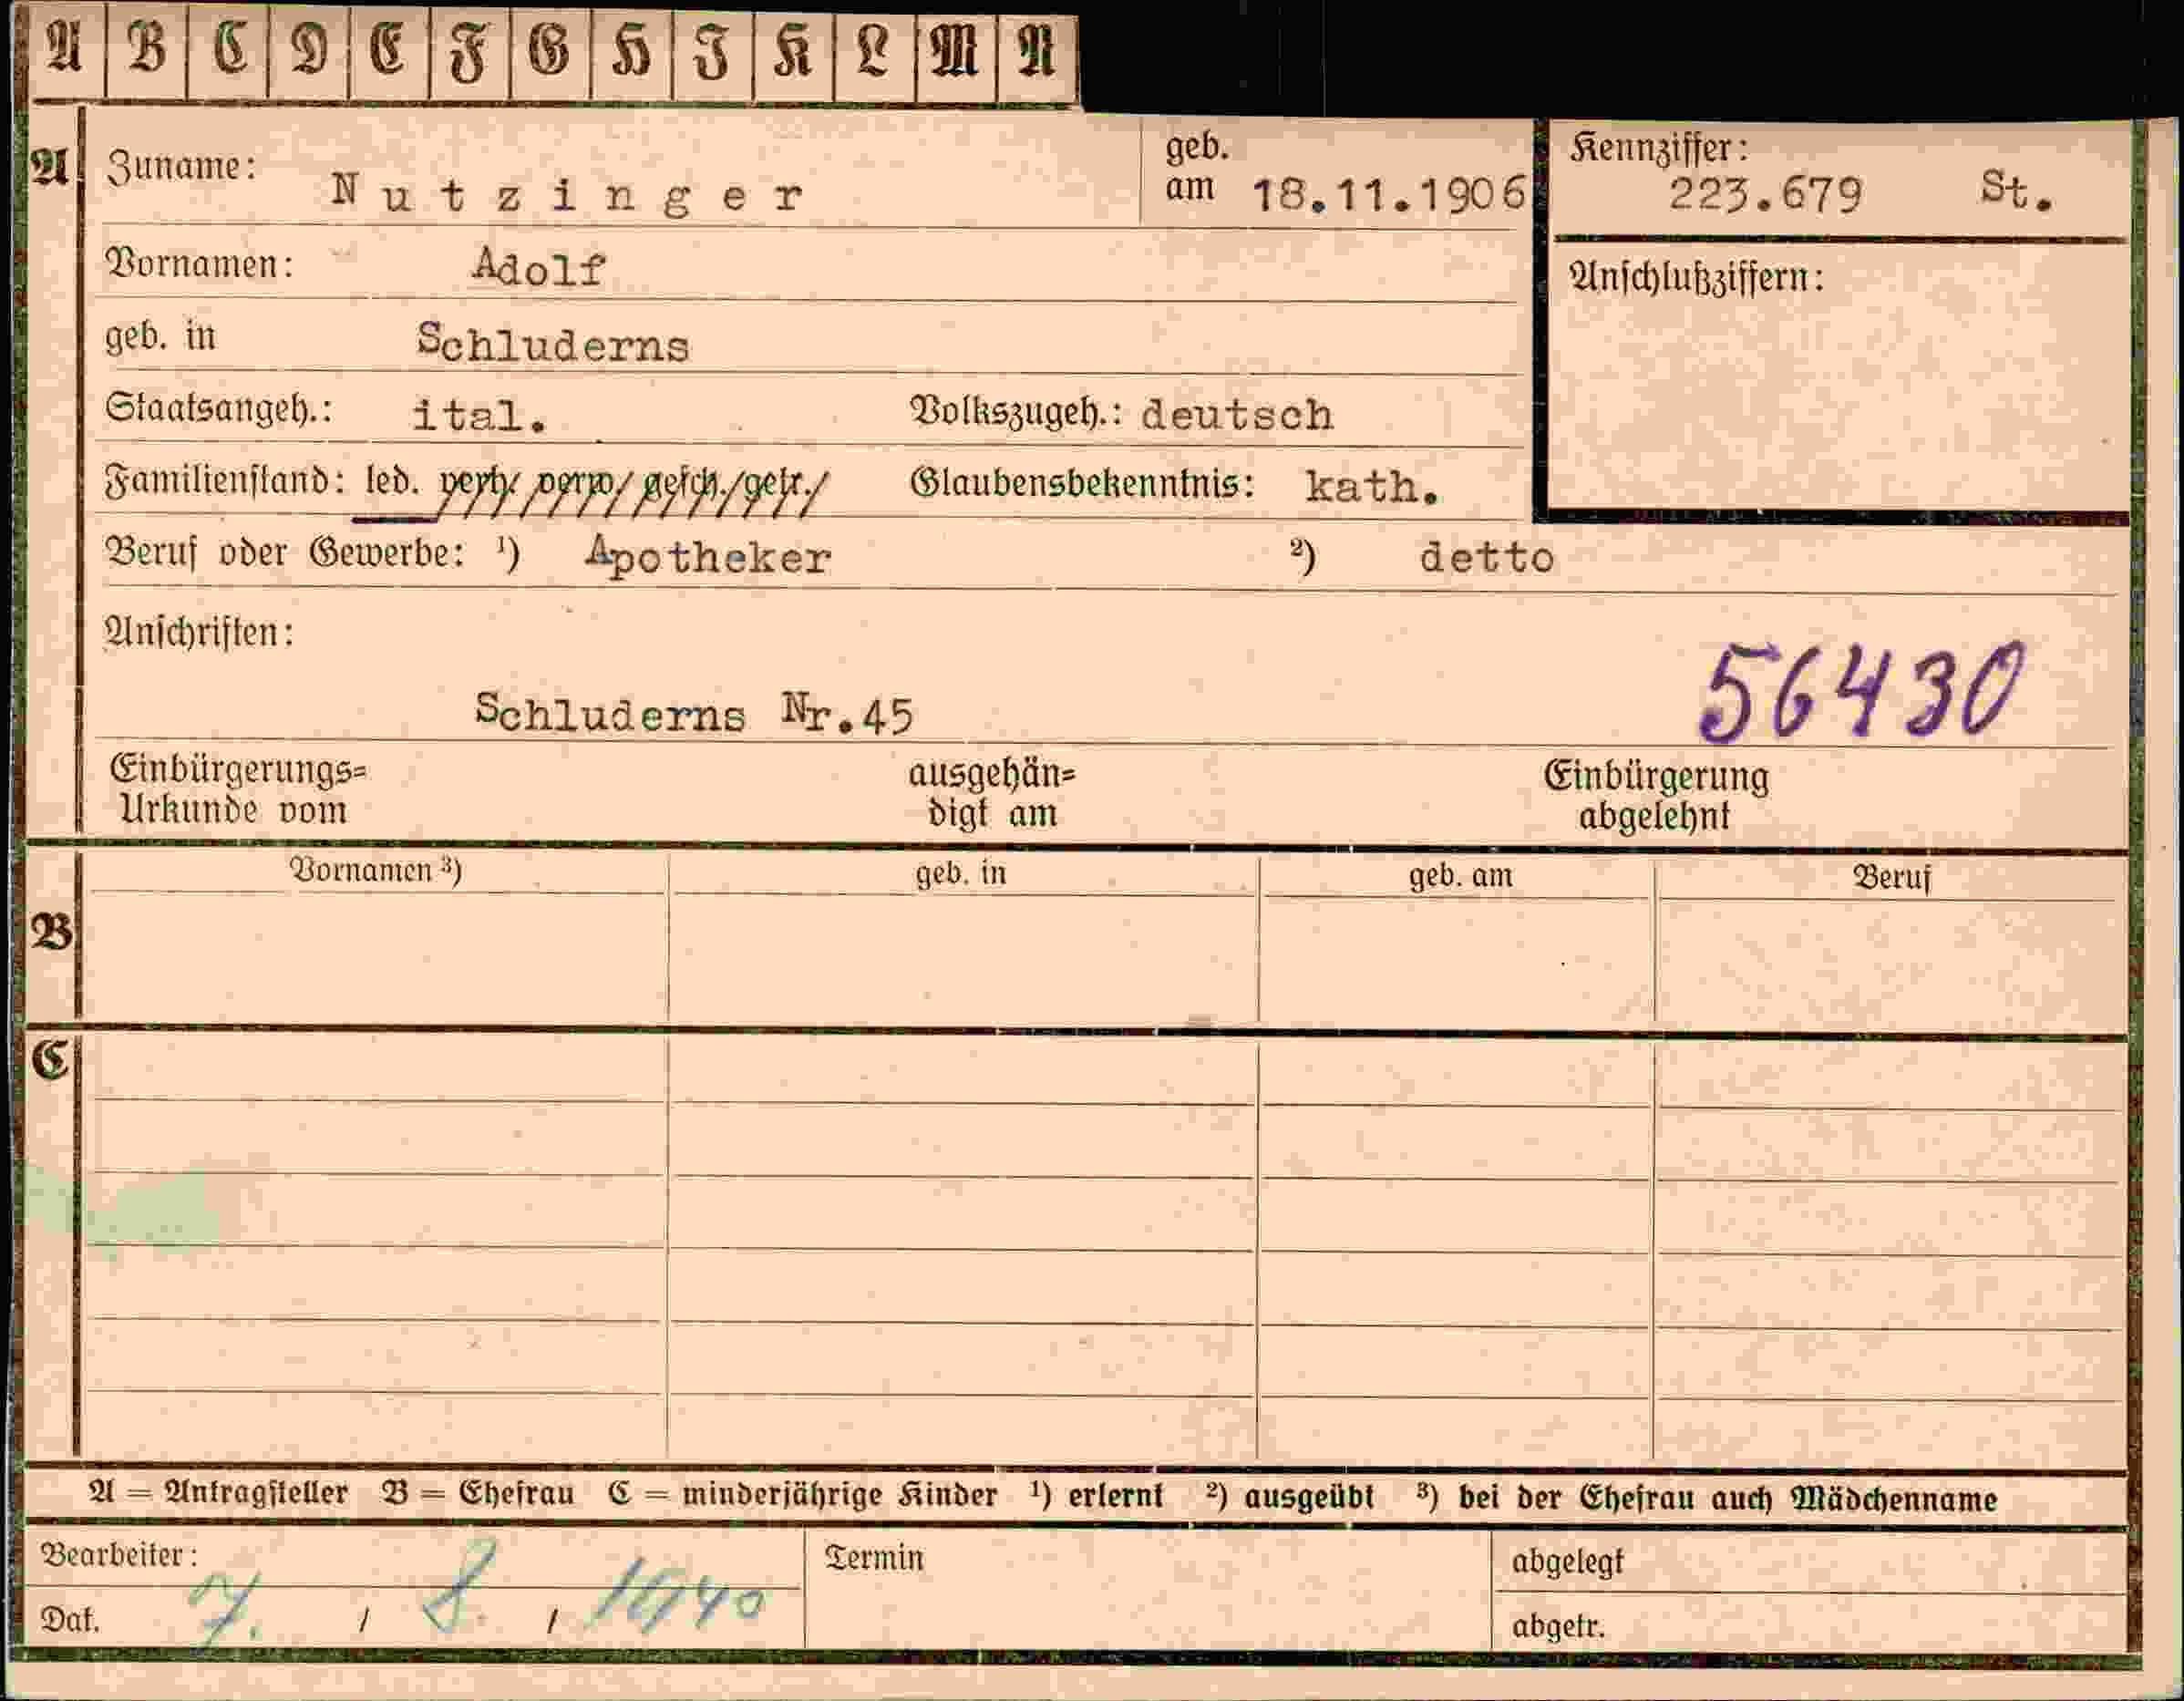 A B C D E F G H I K L M N
A Zuname: Nutzinger geb. am 18.11.1906 Kennziffer: 223.679 St.
Vornamen: Adolf Anschlußziffern:
geb. in Schluderns
Staatsangeh.: ital. Volkszugeh.: deutsch
Familienstand: led. verh. verw. gesch./getr./ Glaubensbekenntnis: kath.
Beruf oder Gewerbe: ¹) Apotheker ²) detto
Anschriften:
56430
Schluderns Nr.45
Einbürgerungs= ausgehän= Einbürgerung
Urkunde vom digt am abgelehnt
Vornamen ³) geb. in geb. am Beruf
B
C
A = Antragsteller B = Ehefrau C = minderjährige Kinder ¹) erlernt ²) ausgeübt ³) bei der Ehefrau auch Mädchenname
Bearbeiter: Termin abgelegt
Dat. 7. / 8. / 1940 abgetr.